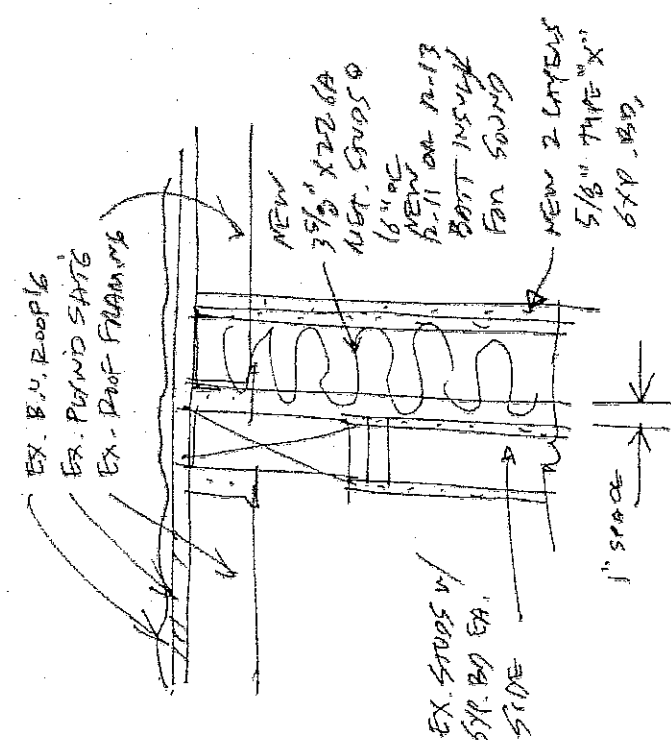 EX. B.U. ROOF'G
EX. PLYWD SHT'G
EX. ROOF FRAMING
NEW
3 5/8" X 22 GA
MET. STUDS @
16" OC
NEW
R-11 OR R-13
BATT INSUL
FOR SOUND
NEW 2 LAYERS
5/8" TYPE "X"
GYP. BD.
EX. STUDS W/
GYP. BD EA.
SIDE
1" SPACE